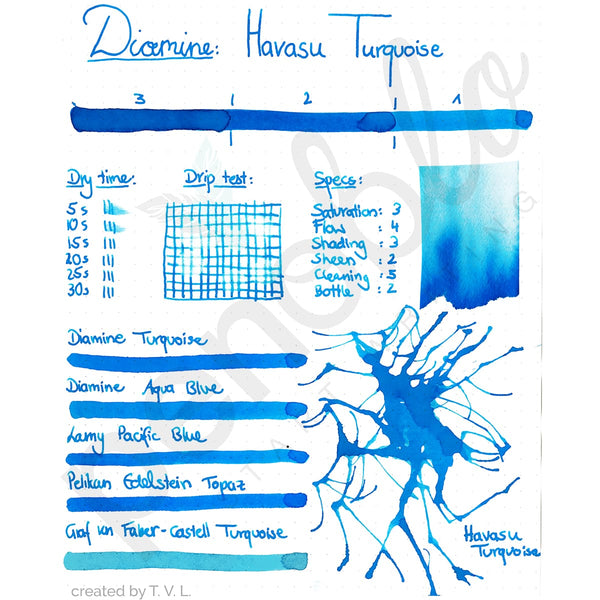 Diamine: Havasu Turquoise
3 2 1
Dry time:
5s
10s
15s
20s
25s
30s
Drip test:
Specs:
Saturation: 3
Flow : 4
Shading : 3
Sheen : 2
Cleaning : 5
Bottle : 2
Diamine Turquoise
Diamine Aqua Blue
Lamy Pacific Blue
Pelikan Edelstein Topaz
Graf von Faber-Castell Turquoise
Havasu
Turquoise
created by T. V. L.